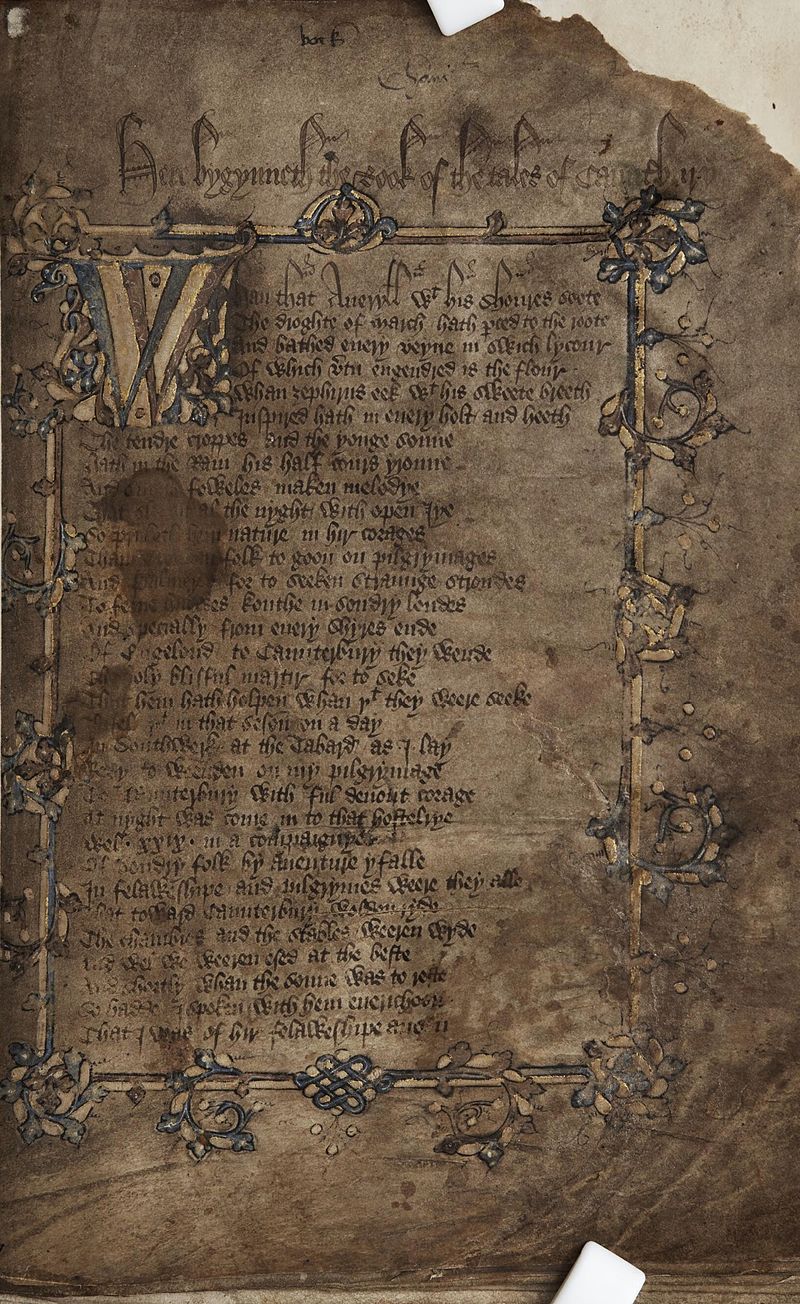 bork
Here bygynneth the Book of the tales of Caunterbury
Whan that Aueryll wt his shoures soote
The droghte of March hath pced to the roote
And bathed euery veyne in swich lycour
Of which vtu engendred is the flour
Whan zephirus eek wt his sweete breeth
Inspired hath in euery holt and heeth
The tendre croppes and the yonge sonne
Hath in the Ram his half cours yronne
And foweles maken melodye
That al the nyght with open Iye
So priketh hem nature in hir corages
folk to goon on pilgrymages
And for to seeken straunge strondes
To ferne kouthe in sondry londes
And specially from euery shyres ende
Of Engelond to Caunterbury they wende
The holy blisful martir for to seke
That hem hath holpen whan yt they weere seeke
yt in that seson on a day
In Southwerk at the Tabard as I lay
Redy to weenden on my pilgrymage
To Caunterbury with ful deuout corage
At nyght was come in to that hostelrye
Wel .xxix. in a compaignye
Of sondry folk by auenture yfalle
In felaweshipe and pilgrymes weere they alle
That toward Caunterbury wolden ryde
The chambres and the stables weeren wyde
And wel we weeren esed at the beste
And shortly whan the sonne was to reste
So hadde I spoken with hem euerichoon
That I was of hir felaweshipe anon